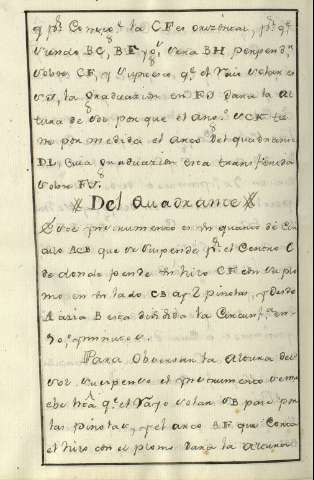 q pr. Conseqe. la CF es orizontal, pr. qe.
siendo BC, BF y qe. sera BH perpendr.
sobre CF, y supuesto qe. el Raio solar es
SV, la graduazion en FV dara la al
tura de sol porque el angº. VCF tie
ne por medida el arco del quadrante
DL cuia graduazion esta transferida
sobre FV.
Del Quadrante
Este ynstrumento es un quarto de Cir
culo ACB que se suspende pr. el Centro C
de donde pende un hiro CF con su plo
mo en un lado CB ay 2 pinolas, y desde
A azia B esta dibidida la Circunfera. en
90, y minutos.
Para Obserbar la Altura del
sol suspenso el ynstrumento se mo
ebe hta. qe. el Rayo solar SB pase por
las pinolas, y el arco BF que Corta
el hiro con el plomo dara la altura